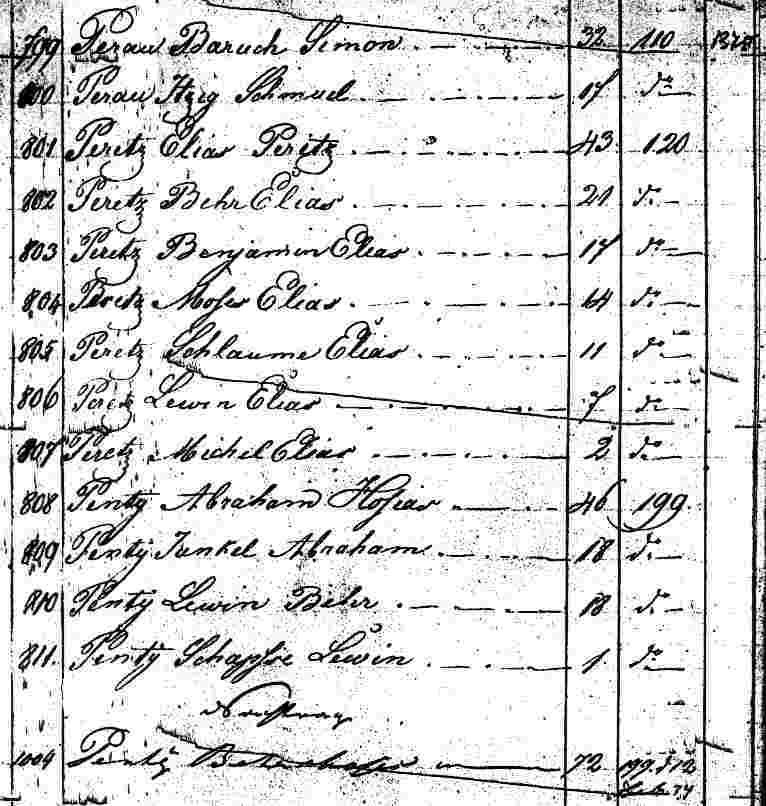 799 Perau Baruch Simon 32 110
800 Perau Itzig Schmuel 17 do
801 Peretz Elias Peritz 43 120
802 Peretz Behr Elias 21 do
803 Peretz Benjamin Elias 17 do
804 Peretz Moses Elias 14 do
805 Peretz Schlaume Elias 11 do
806 Peretz Lewin Elias 7 do
807 Peretz Michel Elias 2 do
808 Penty Abraham Hosias 46 199
809 Penty Jankel Abraham 18 do
810 Penty Lewin Behr 18 do
811. Penty Schapse Lewin 1 do
Nachtrag
1004 Penty 72 199